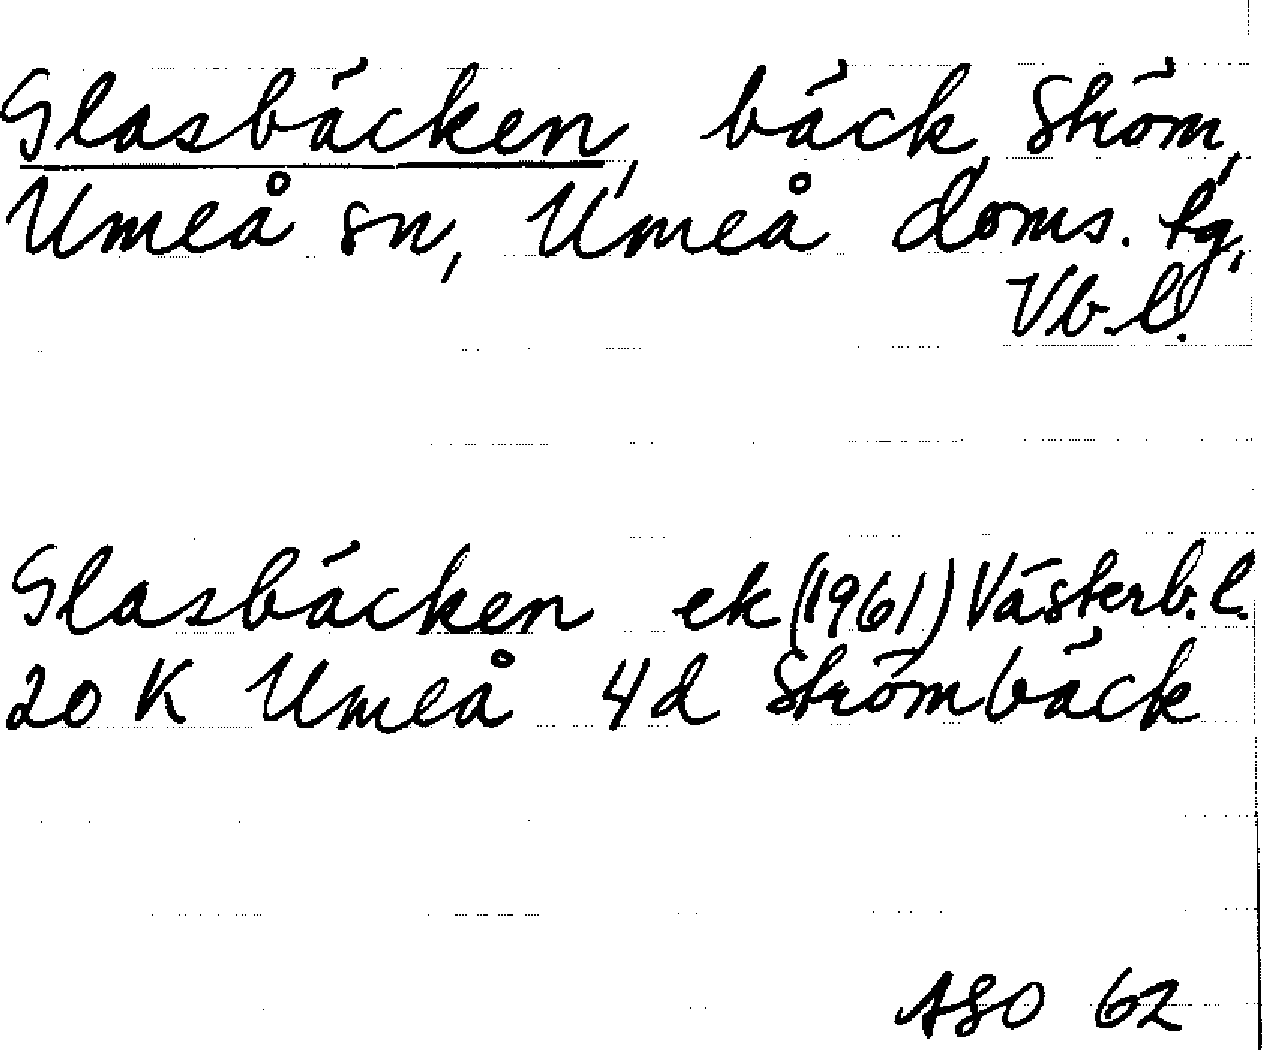 Glasbäcken, bäck, Ström,
Umeå sn, Umeå doms. tg,
Vb. l.
Glasbäcken ek (1961) Västerb. l.
20 K Umeå 4d Strömbäck
ASO 62